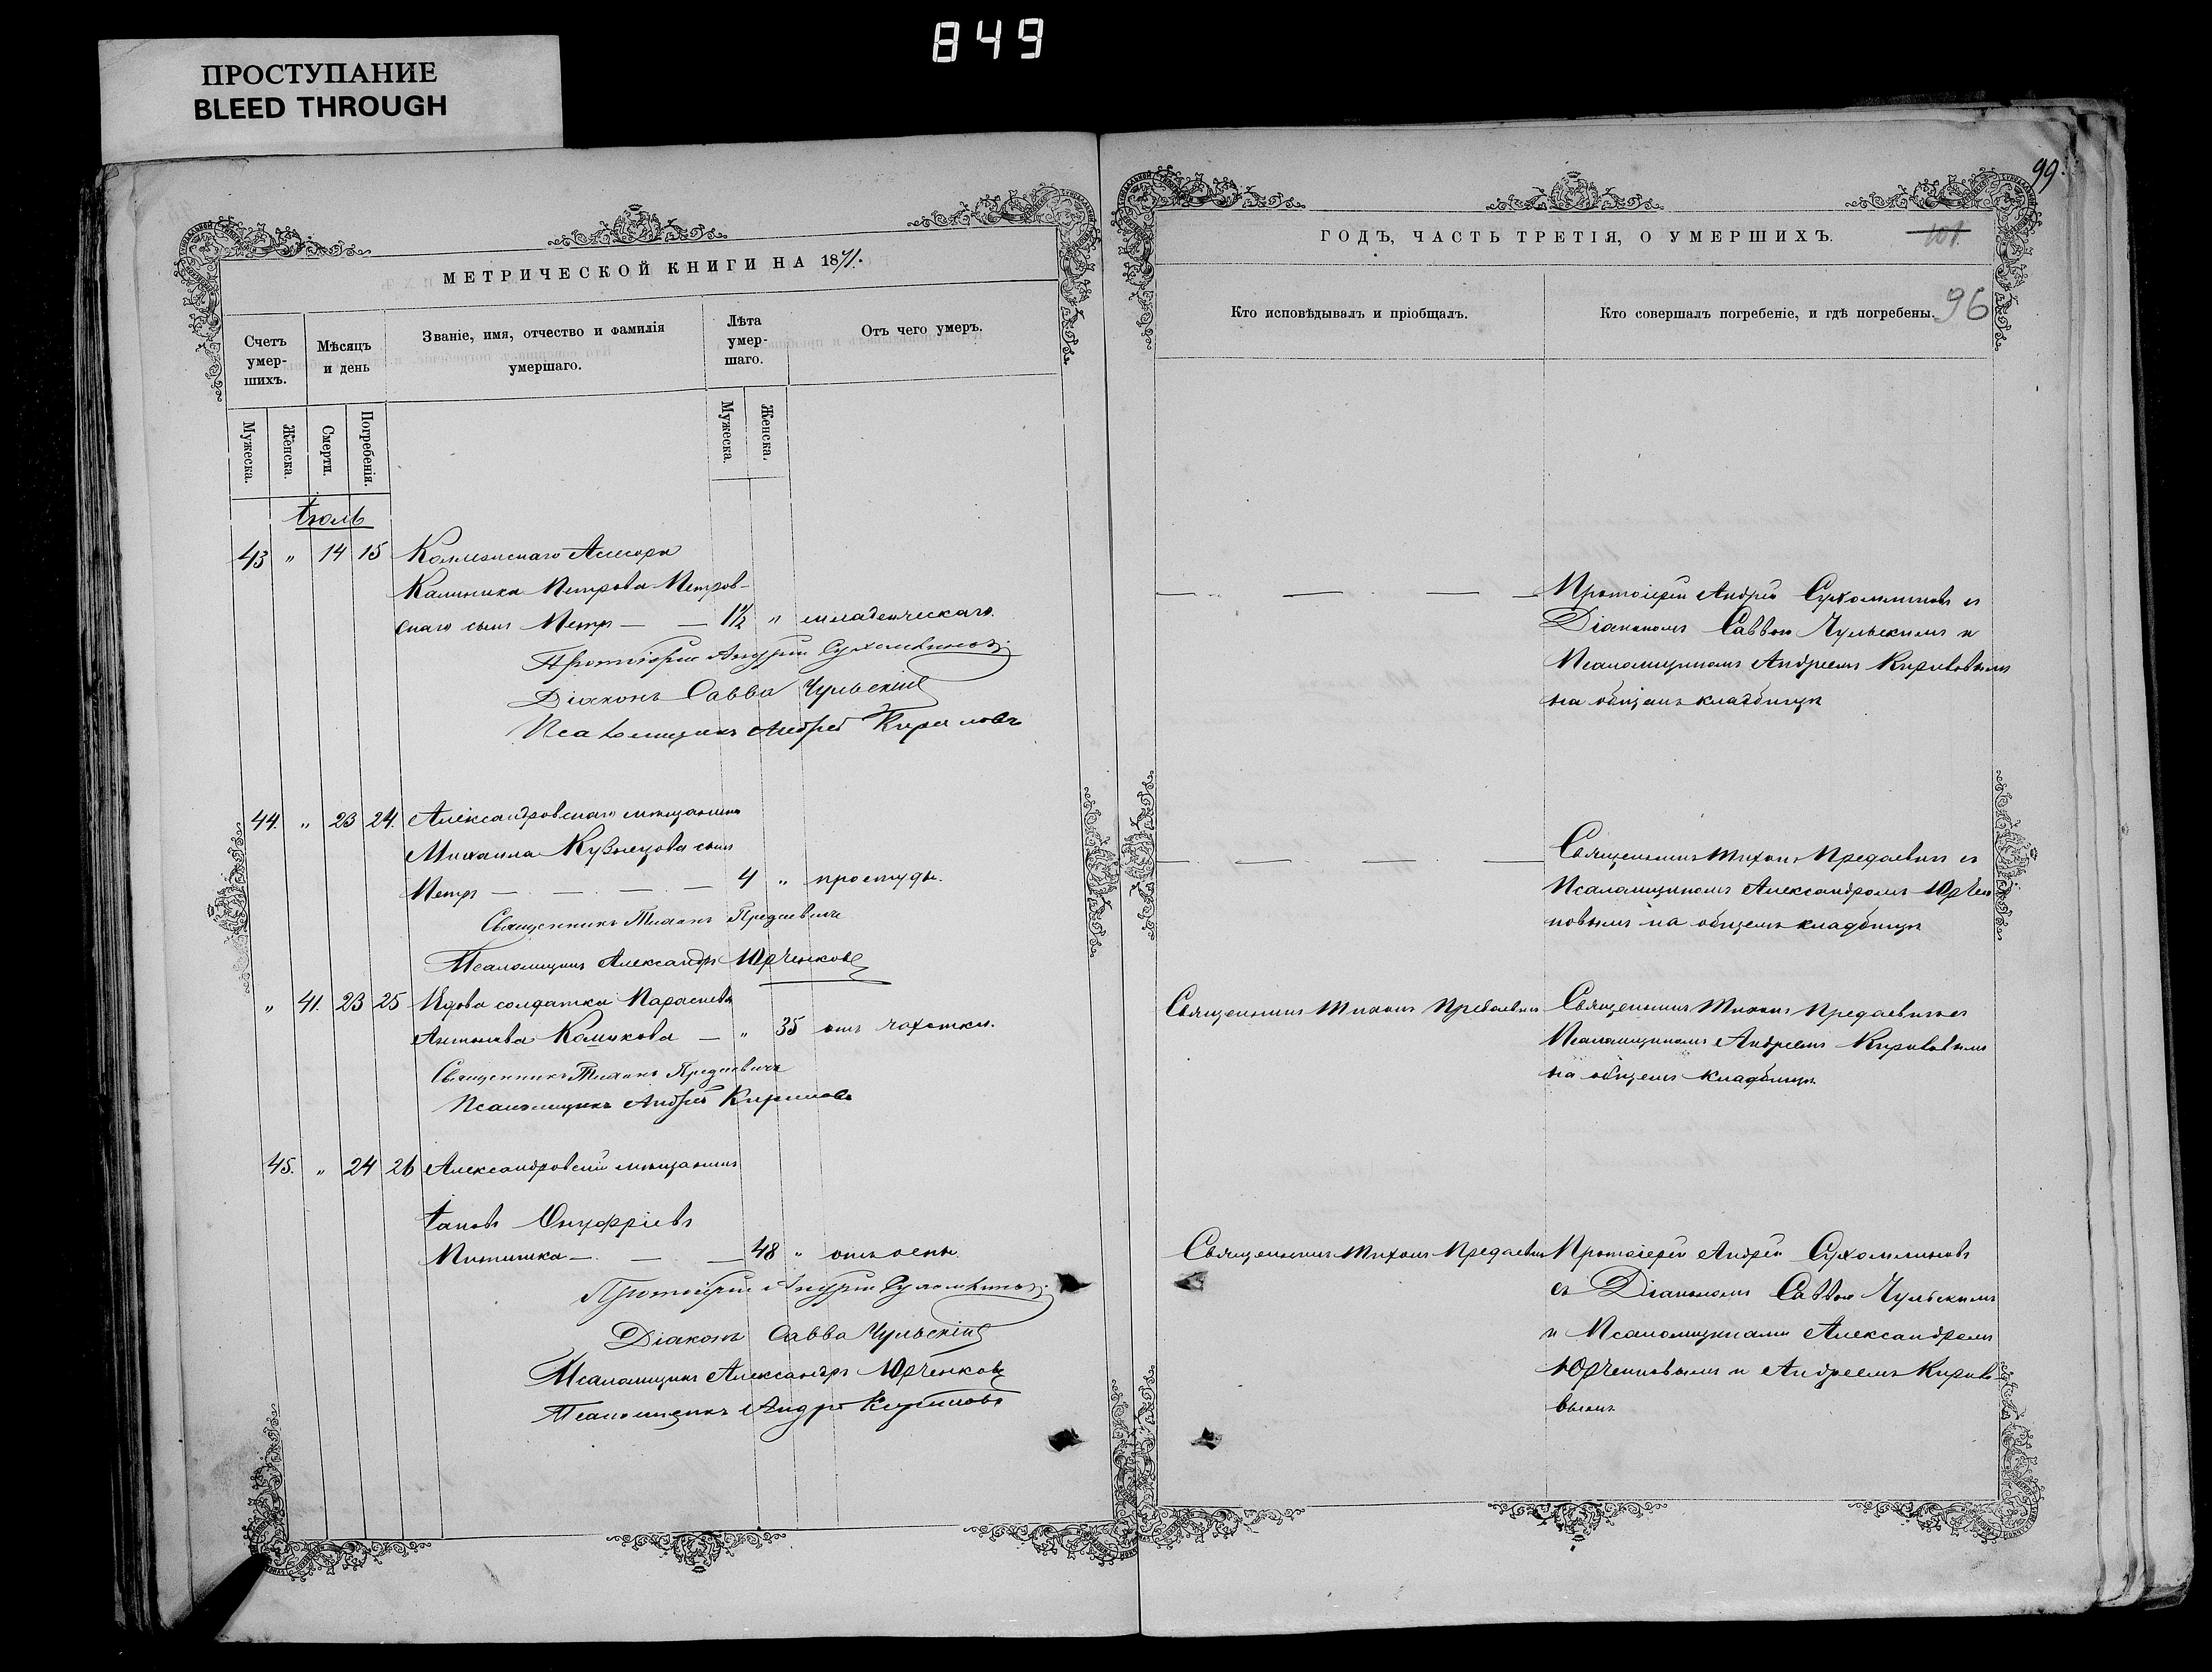 849
ПРОСТУПАНИЕ
BLEED THROUGH
99.
МЕТРИЧЕСКОЙ КНИГИ НА 1871.
Счетъ умер-шихъ.
Мѣсяцъ и день
Званіе, имя, отчество и фамилія умершаго.
Лѣта умер-шаго.
Отъ чего умеръ.
Мужеска.
Женска.
Смерти.
Погребенія.
Мужеска.
Женска.
Іюль
43 " 14 15 Коллежскаго Ассесора
Калиника Петрова Петров-
скаго сынъ Петръ — — 1½ " младенческаго.
Протоіерей Андрей Сухомлиновъ
Діаконъ Савва Чульскій
Псаломщикъ Андрей Кириловъ
44. " 23 24. Александровскаго мѣщанина
Михаила Кузнецова сынъ
Петръ — — — — 4 " простуды.
Священникъ Тихонъ Предаевичъ
Псаломщикъ Александръ Юрченковъ
" 41. 23 25 Вдова солдатка Параскева
Антонова — " 35 отъ чахотки.
Священникъ Тихонъ Предаевичъ
Псаломщикъ Андрей Кириловъ
45. " 24 26 Александровскій мѣщанинъ
Іаковъ Онуфріевъ
— — — 48 " отъ оспы.
Протоіерей Андрей Сухомлиновъ
Діаконъ Савва Чульскій
Псаломщикъ Александръ Юрченковъ
Псаломщикъ Андрей Кириловъ
ГОДЪ, ЧАСТЬ ТРЕТІЯ, О УМЕРШИХЪ.
101.
96
Кто исповѣдывалъ и пріобщалъ.
Кто совершалъ погребеніе, и гдѣ погребены.
— — — — Протоіерей Андрей Сухомлиновъ съ
Діакономъ Саввою Чульскимъ и
Псаломщикомъ Андреемъ Кириловымъ
на общемъ кладбищѣ
— — — — Священникъ Тихонъ Предаевичъ съ
Псаломщикомъ Александромъ Юрчен-
ковымъ на общемъ кладбищѣ
Священникъ Тихонъ Предаевичъ
Священникъ Тихонъ Предаевичъ съ
Псаломщикомъ Андреемъ Кириловымъ
на общемъ кладбищѣ
Священникъ Тихонъ Предаевичъ
Протоіерей Андрей Сухомлиновъ
съ Діакономъ Саввою Чульскимъ
и Псаломщиками Александромъ
Юрченковымъ и Андреемъ Кирило-
вымъ